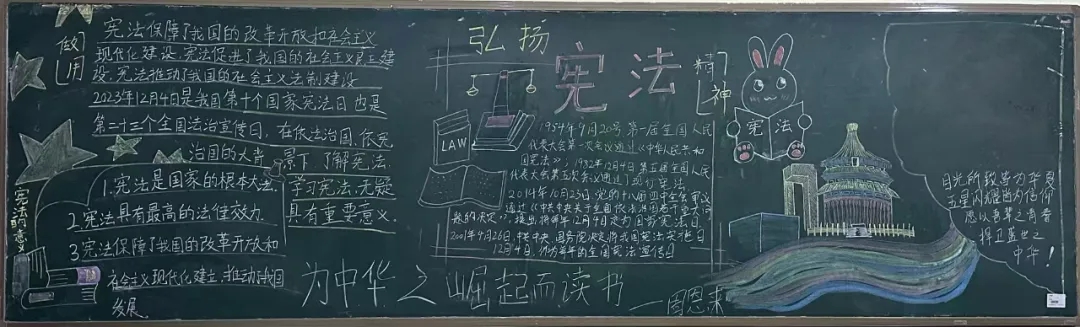 作用
宪法保障了我国的改革开放和社会主义
现代化建设.宪法促进了我国的社会主义民主建
设.宪法推动了我国的社会主义法制建设
2023年12月4日是我国第十个国家宪法日也是
第二十三个全国法治宣传日.在依法治国、依宪
治国的大背景下了解宪法
学习宪法.无疑
具有重要意义.
宪法的意义
1.宪法是国家的根本大法.
2.宪法具有最高的法律效力.
3.宪法保障了我国的改革开放和
社会主义现代化建立.推动我国
发展.
弘扬
宪法
精神
LAW
1954年9月20号第一届全国人民
代表大会第一次会议通过《中华人民共和
国宪法》;1982年12月4日第五届全国人民
代表大会第五次会议通过了现行宪法
2014年10月23日党的十八届四中全会审议
通过《中共中央关于全面依法治国若干重大问
题的决定》,提出将每年12月4日定为国家宪法日.
2001年4月26日,中共中央、国务院决定将我国宪法实施日
12月4日,作为每年的全国宪法宣传日
为中华之崛起而读书
—周恩来
宪法
目光所致皆为华夏
五星闪耀皆为信仰
愿以青春之
捍卫盛世之
中华!